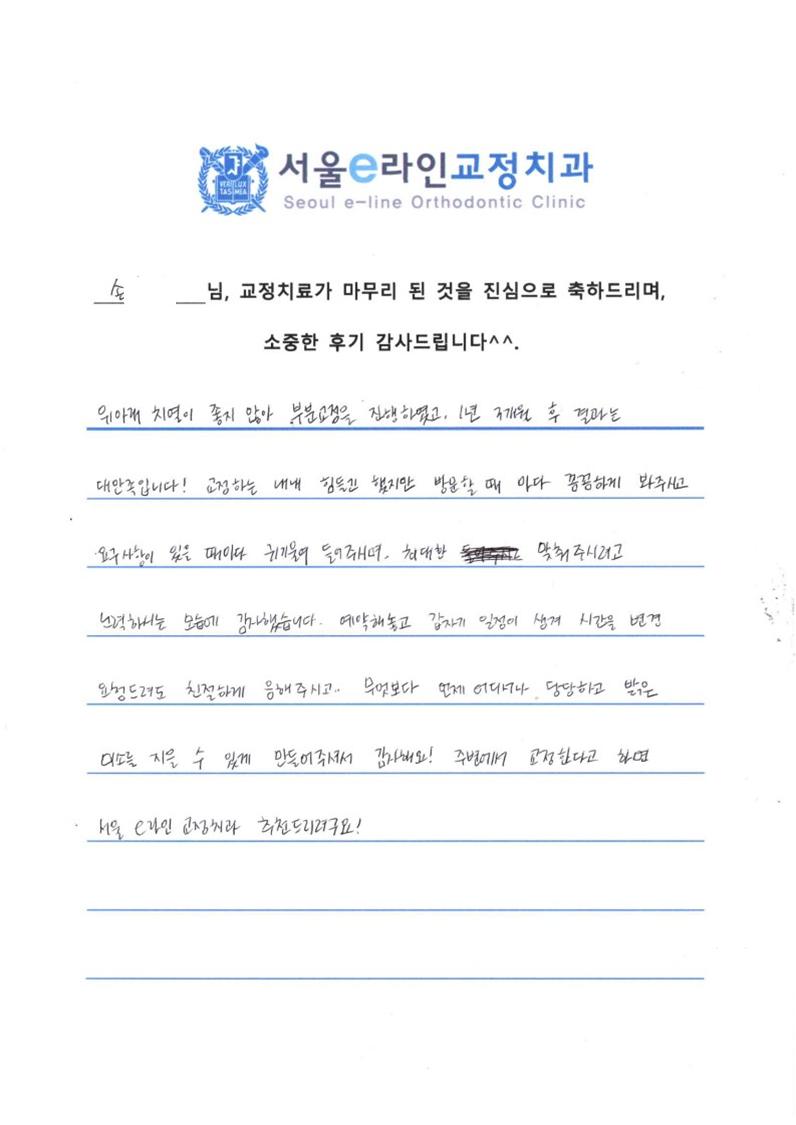 VERI LUX
TAS MEA
서울e라인교정치과
Seoul e-line Orthodontic Clinic
손 님, 교정치료가 마무리 된 것을 진심으로 축하드리며,
소중한 후기 감사드립니다^^.
위아래 치열이 좋지 않아 부분교정을 진행하였고, 1년 7개월 후 결과는
대만족입니다! 교정하는 내내 힘들긴 했지만 방문할 때 마다 꼼꼼하게 봐주시고
요구사항이 있을 때마다 귀기울여 들어주시며, 최대한 맞춰주시려고
노력하시는 모습에 감사했습니다. 예약해놓고 갑자기 일정이 생겨 시간을 변경
요청드려도 친절하게 응해주시고.. 무엇보다 언제 어디서나 당당하고 밝은
미소를 지을 수 있게 만들어주셔서 감사해요! 주변에서 교정한다고 하면
서울 e라인 교정치과 추천드리려구요!